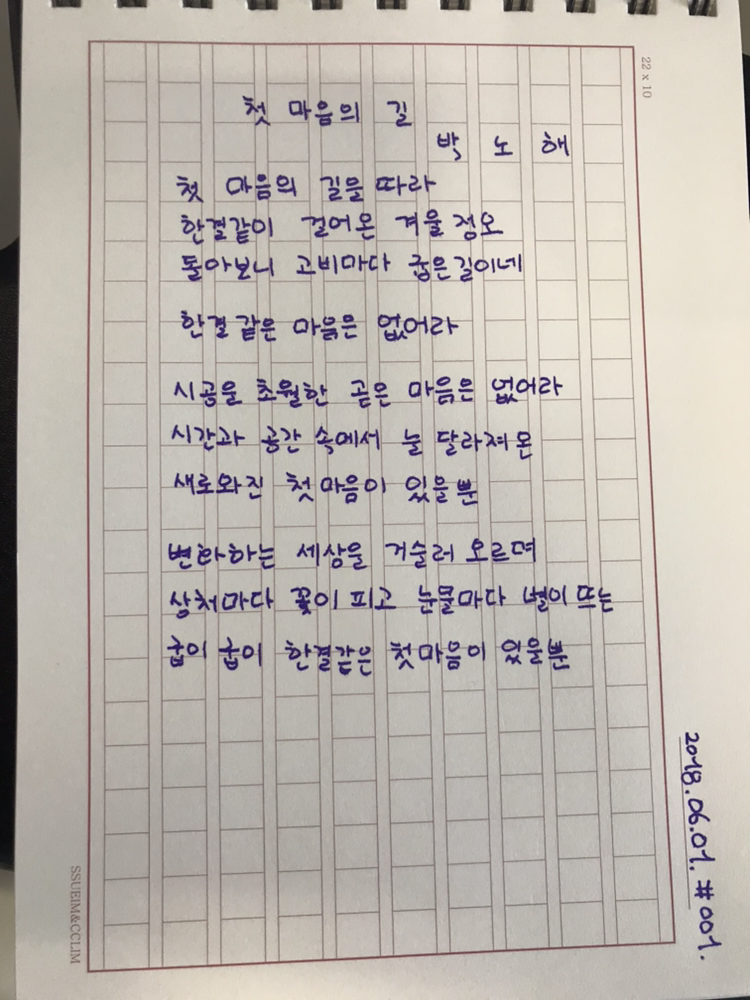 22 x 10
첫 마음의 길
박 노 해
첫 마음의 길을 따라
한결같이 걸어온 겨울 정오
돌아보니 고비마다 굽은 길이네
한결 같은 마음은 없어라
시공을 초월한 곧은 마음은 없어라
시간과 공간 속에서 늘 달라져온
새로와진 첫 마음이 있을 뿐
변화하는 세상을 거슬러 오르며
상처마다 꽃이 피고 눈물마다 별이 뜨는
굽이 굽이 한결같은 첫 마음이 있을 뿐
2018.06.01. #001.
SSUEIM&CCLIM